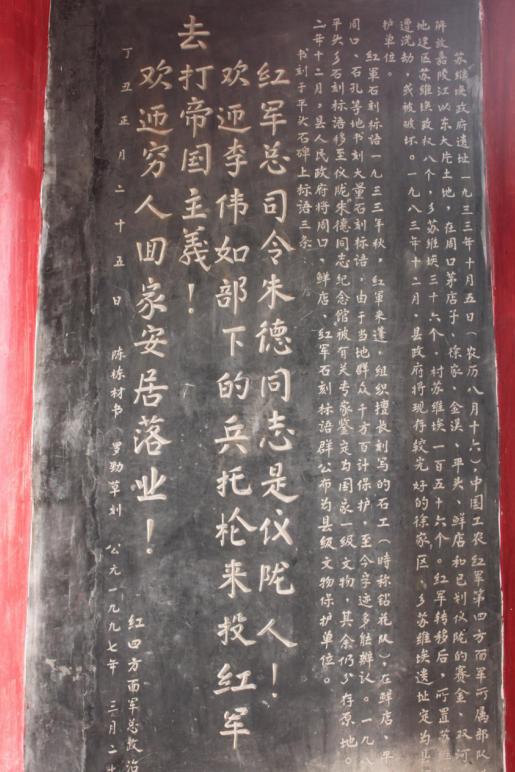 苏维埃政府遗址一九三三年十月五日(农历八月十六)中国工农红军第四方面军所属部队
解放嘉陵江以东大片土地,在周口茅店子、徐家、金溪、平头、鲜店和已划仪陇的赛金、双河
地建区苏维埃政权八个,乡苏维埃三十六个,村苏维埃一百五十六个。红军转移后,所置苏维
遭洗劫,或被破坏。一九八三年十二月,县政府将现存较完好的徐家区、乡苏维埃遗址定为县
护单位。
红军石刻标语一九三三年秋,红军来蓬,组织擅长刻写的石工(时称钻花队),在鲜店,平
周口、石孔等地书刻大量石刻标语,由于当地群众千方百计保护,至今字迹多能辨认。一九八
平头乡石刻标语移至仪陇朱德同志纪念馆被有关专家鉴定为国家一级文物,其余仍多存原地。
二年十二月,县人民政府将周口、鲜店、红军石刻标语群公布为县级文物保护单位。
书刻于平头石碑上标语三条:
红军总司令朱德同志是仪陇人!
欢迊李伟如部下的兵托枪来投红军
去打帝国主義!
欢迊穷人回家安居落业!
红四方面军总政治
丁丑正月二十五日 陈栋材书 罗勋草刻 公元一九九七年 三月二